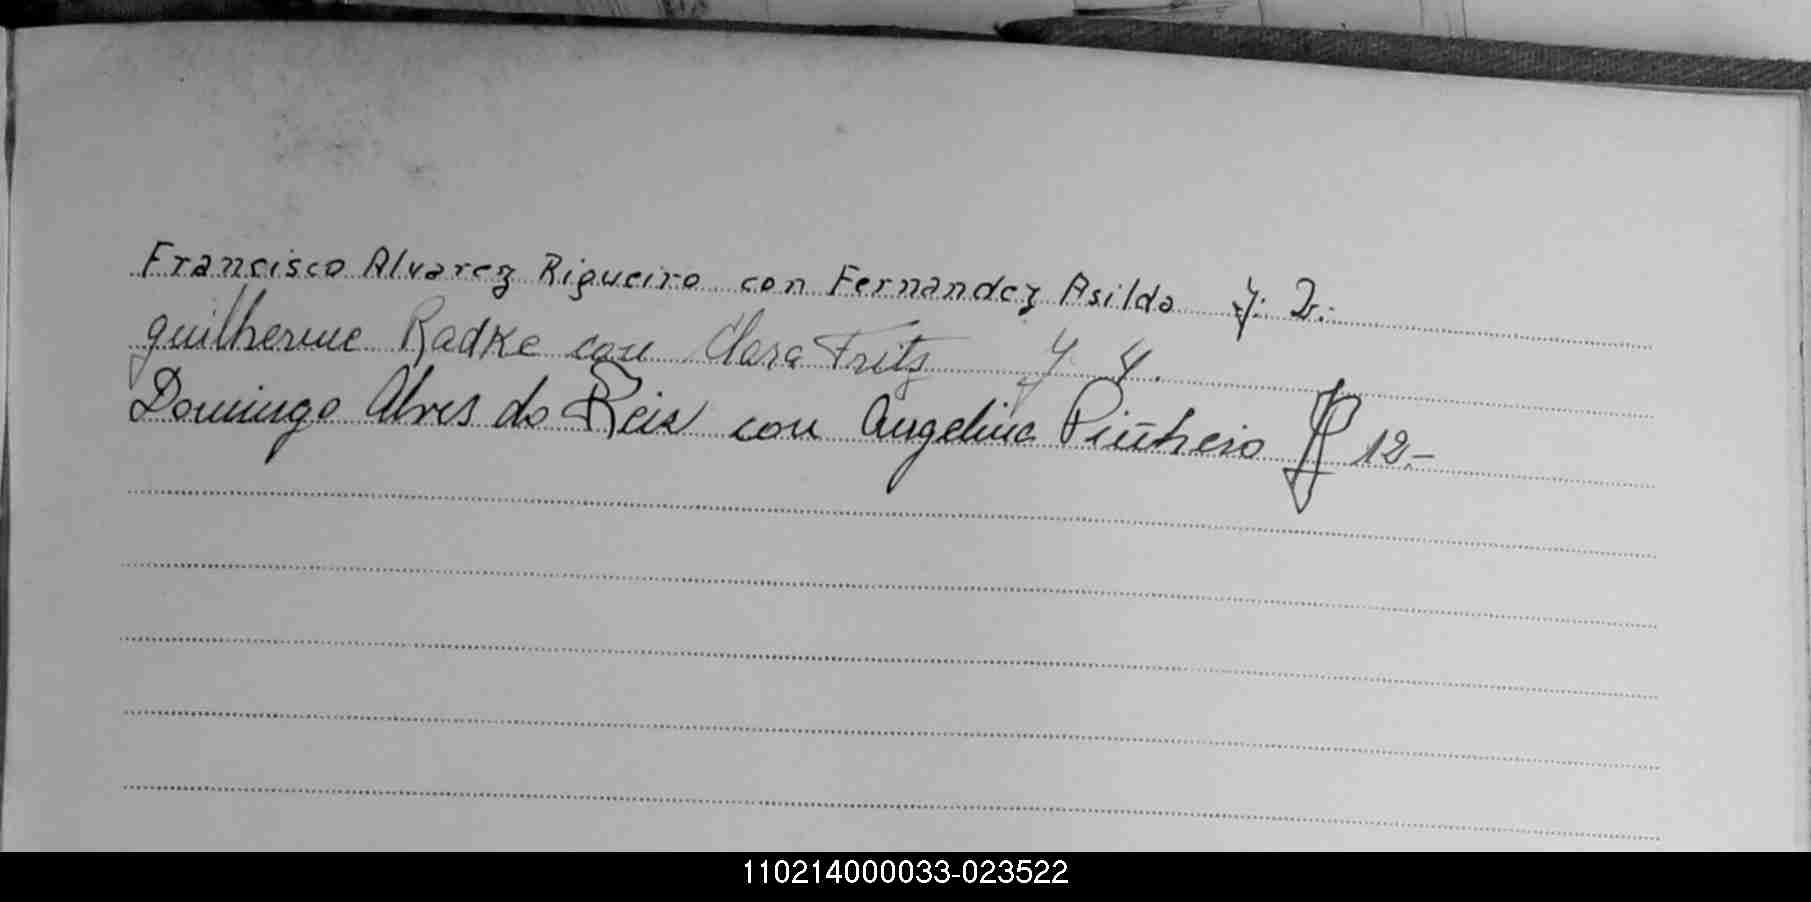 Francisco Alvarez Rigueiro con Fernandez Asilda f. 2.
Guilherme Radke con Clara Fritz f 4.
Domingo Alves do Reis con Angelina Pinheiro 12.-
110214000033-023522